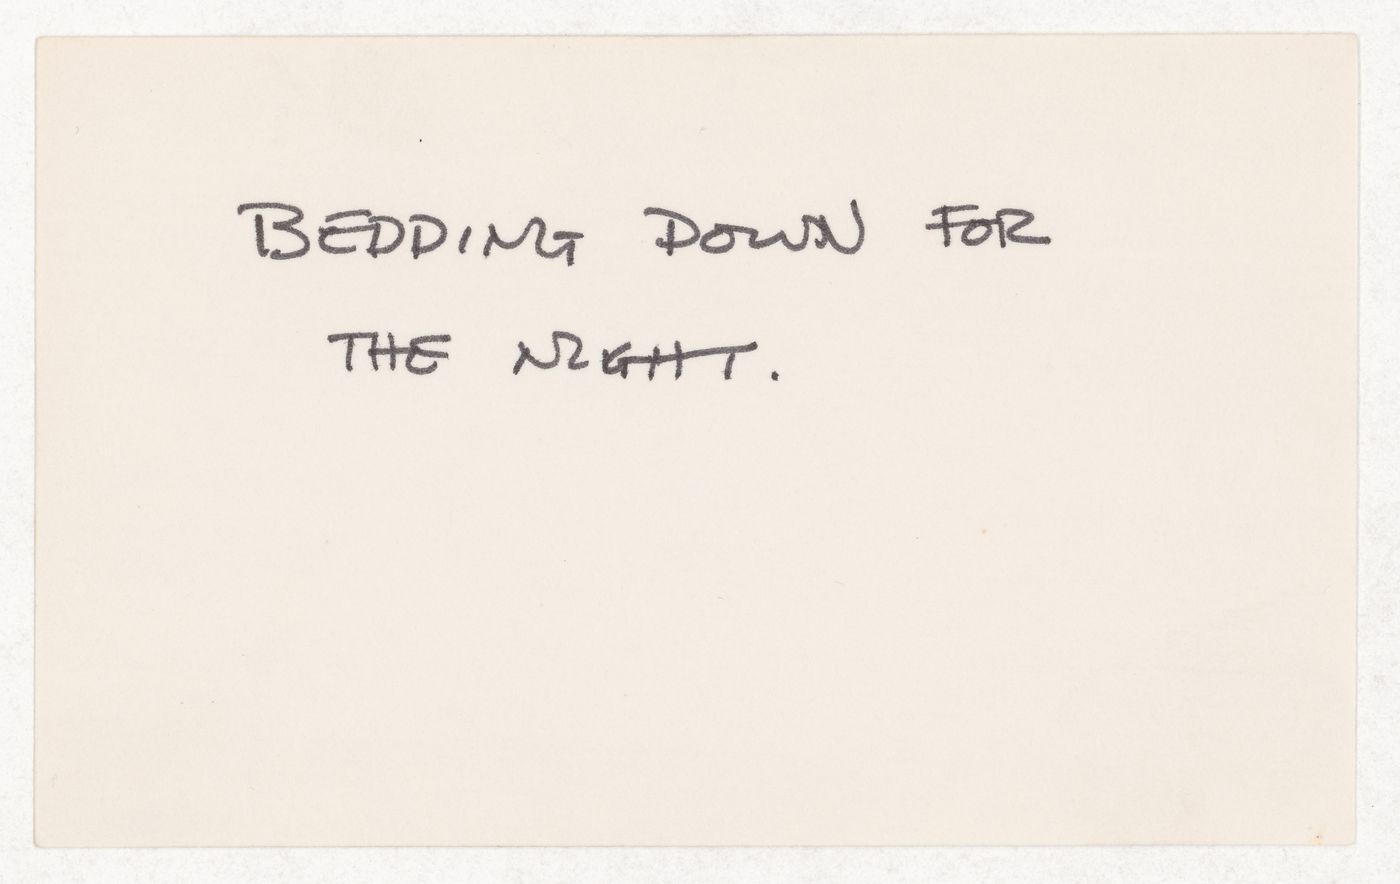 BEDDING DOWN FOR
THE NIGHT.